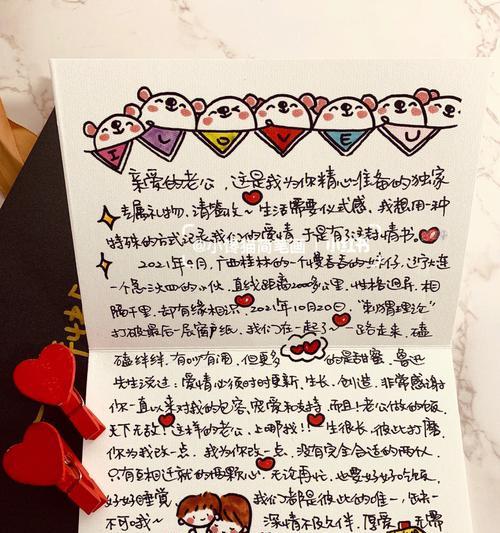 I L O V E U
亲爱的老公，这是我为你精心准备的独家
专属礼物，请签收~生活需要仪式感，我想用一种
特殊的方式记录我们的爱情，于是有了这封情书。
@小佟猫简笔画 小红书
2021年1月，广西桂林的一个慢吞吞的女仔，辽宁大连
一个急冲冲的小伙，直线距离2000多公里，性格迥异，
相隔千里，却有缘相识。2021年10月20日，"刺猬理论"
打破最后一层窗户纸，我们在一起了~一路走来，磕
磕绊绊，有吵有闹，但更多的是甜蜜，鲁迅
先生说过：爱情必须时时更新，生长，创造，非常感谢
你一直以来对我的包容、宠爱和支持，而且！老公做的饭
天下无敌！这样的老公，上哪找！！一生很长，彼此打磨，
你为我改一点，我为你改一点，没有完全合适的两个人
只有互相迁就的两颗心，无论再忙，也要好好吃饭，
好好睡觉 我们都是彼此的唯一，缺一
不可哦~ 深情不及久伴，厚爱无需